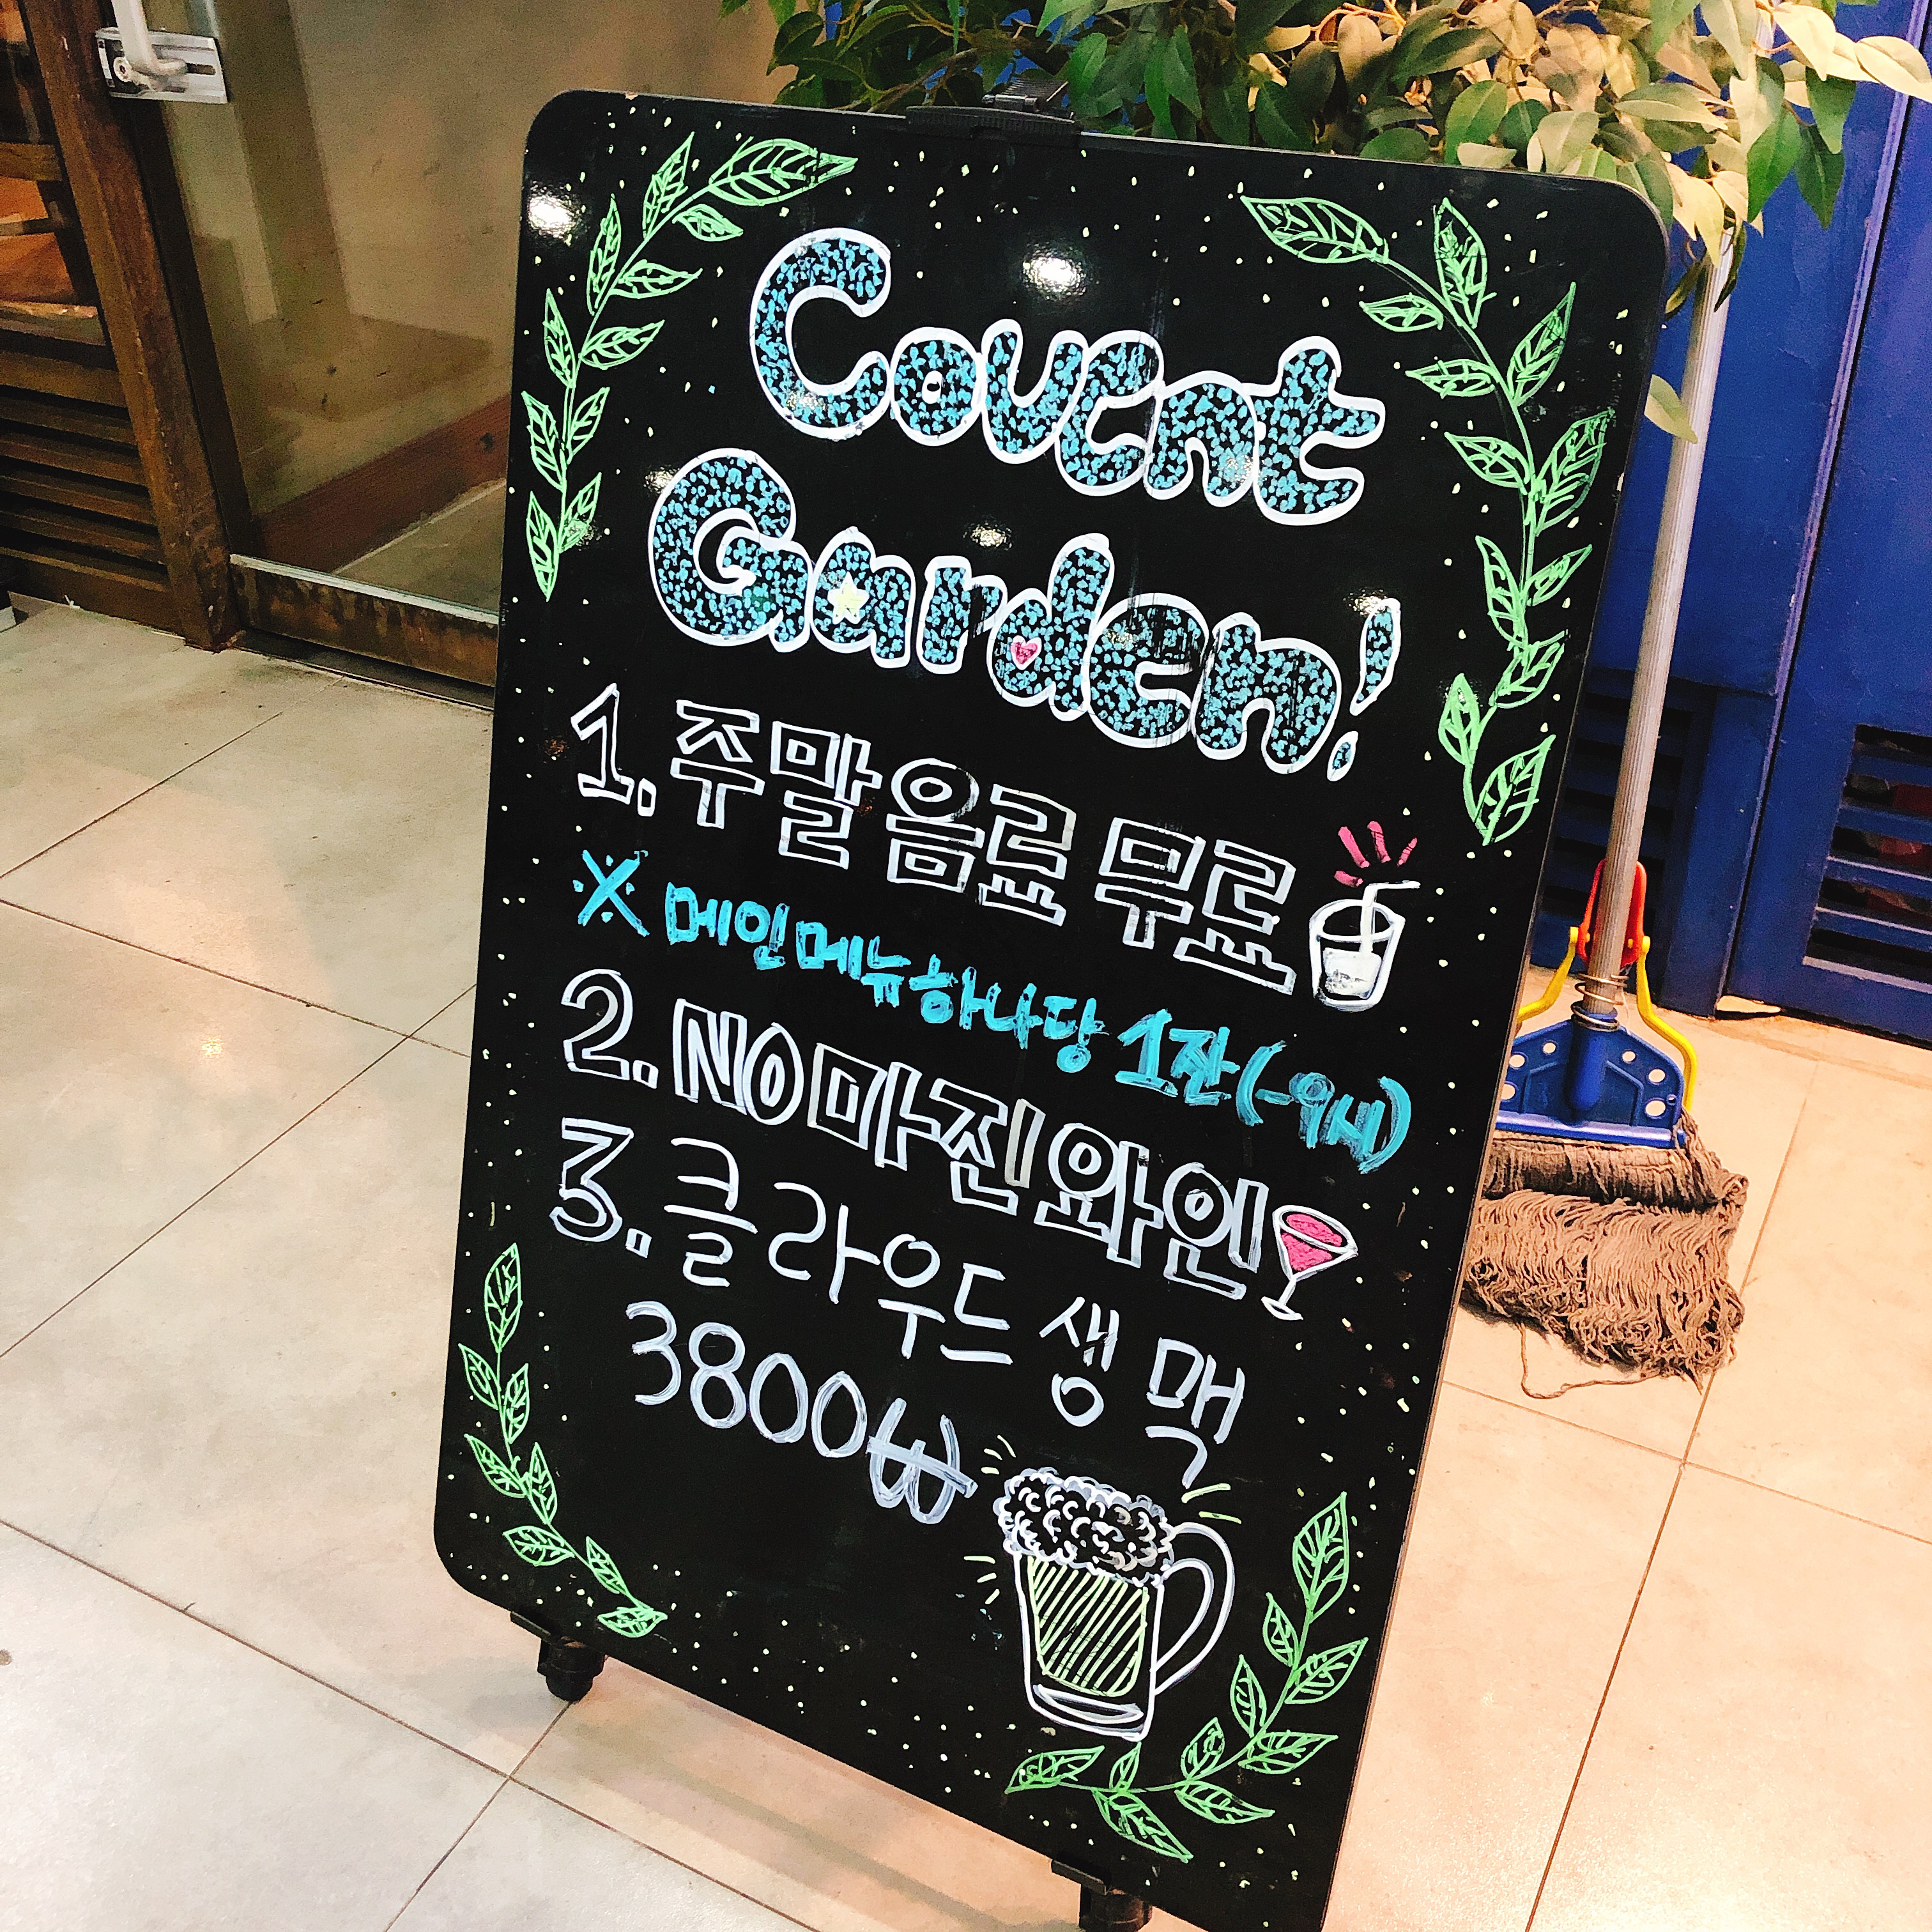 Covent
Garden!
1. 주말 음료 무료
※ 메인메뉴 하나당 1잔 (-9시)
2. NO 마진 와인
3. 클라우드 생맥
3800₩